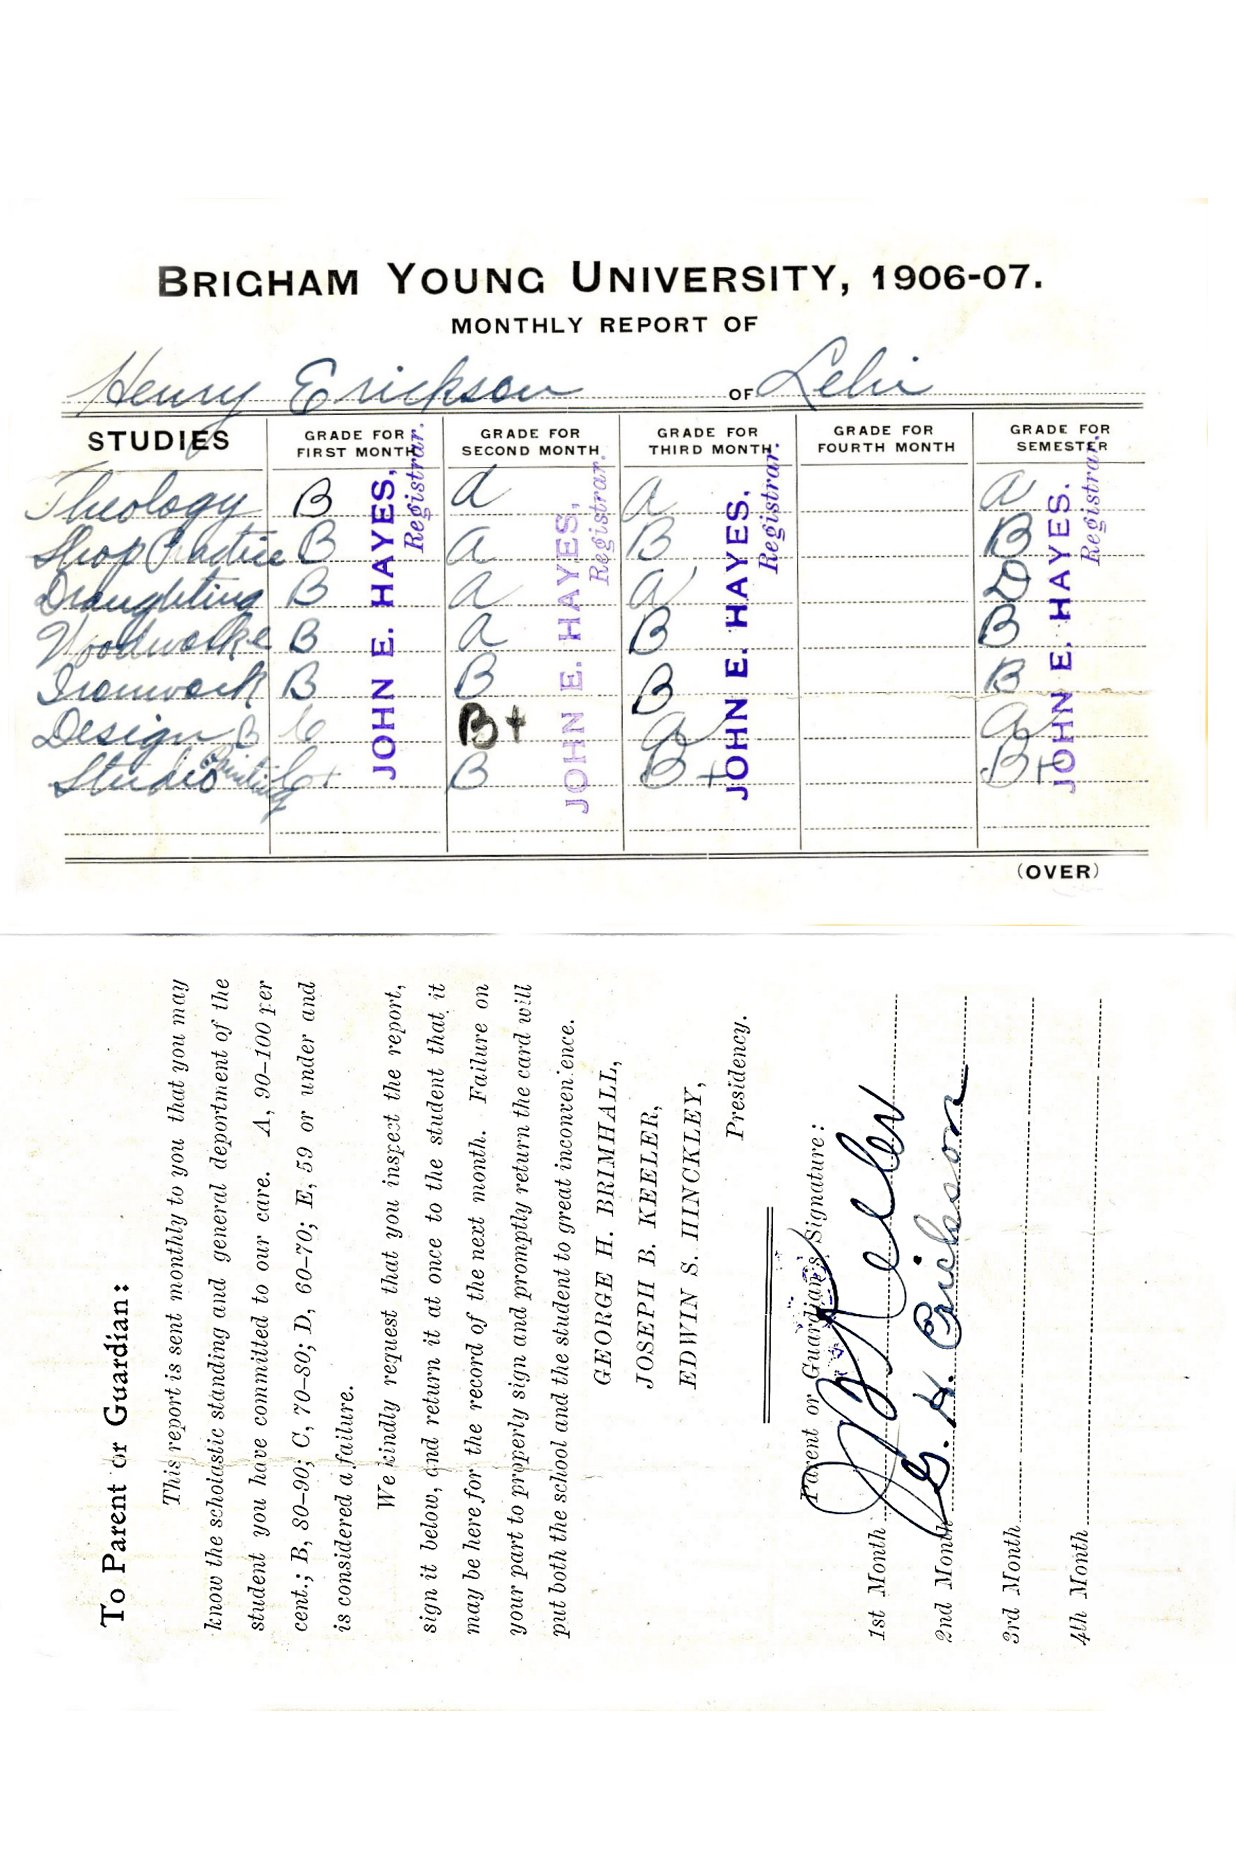 BRIGHAM YOUNG UNIVERSITY, 1906-07.
MONTHLY REPORT OF
Henry Erickson OF Lehi
STUDIES GRADE FOR FIRST MONTH GRADE FOR SECOND MONTH GRADE FOR THIRD MONTH GRADE FOR FOURTH MONTH GRADE FOR SEMESTER
Theology B A A A
Shop Practice B A B B
Draughting B A A D
Woodworke B A B B
Ironwork B B B B
Design B C B+ A A
Studio Painting C+ B B+ B+
JOHN E. HAYES,
Registrar.
JOHN E. HAYES,
Registrar.
JOHN E. HAYES.
Registrar.
JOHN E. HAYES.
Registrar.
(OVER)
To Parent or Guardian:
This report is sent monthly to you that you may
know the scholastic standing and general deportment of the
student you have committed to our care. A, 90-100 per
cent.; B, 80-90; C, 70-80; D, 60-70; E, 59 or under and
is considered a failure.
We kindly request that you inspect the report,
sign it below, and return it at once to the student that it
may be here for the record of the next month. Failure on
your part to properly sign and promptly return the card will
put both the school and the student to great inconvenience.
GEORGE H. BRIMHALL,
JOSEPH B. KEELER,
EDWIN S. HINCKLEY,
Presidency.
Parent or Guardian's Signature:
1st Month J B Keeler
2nd Month B. H. Erickson
3rd Month
4th Month